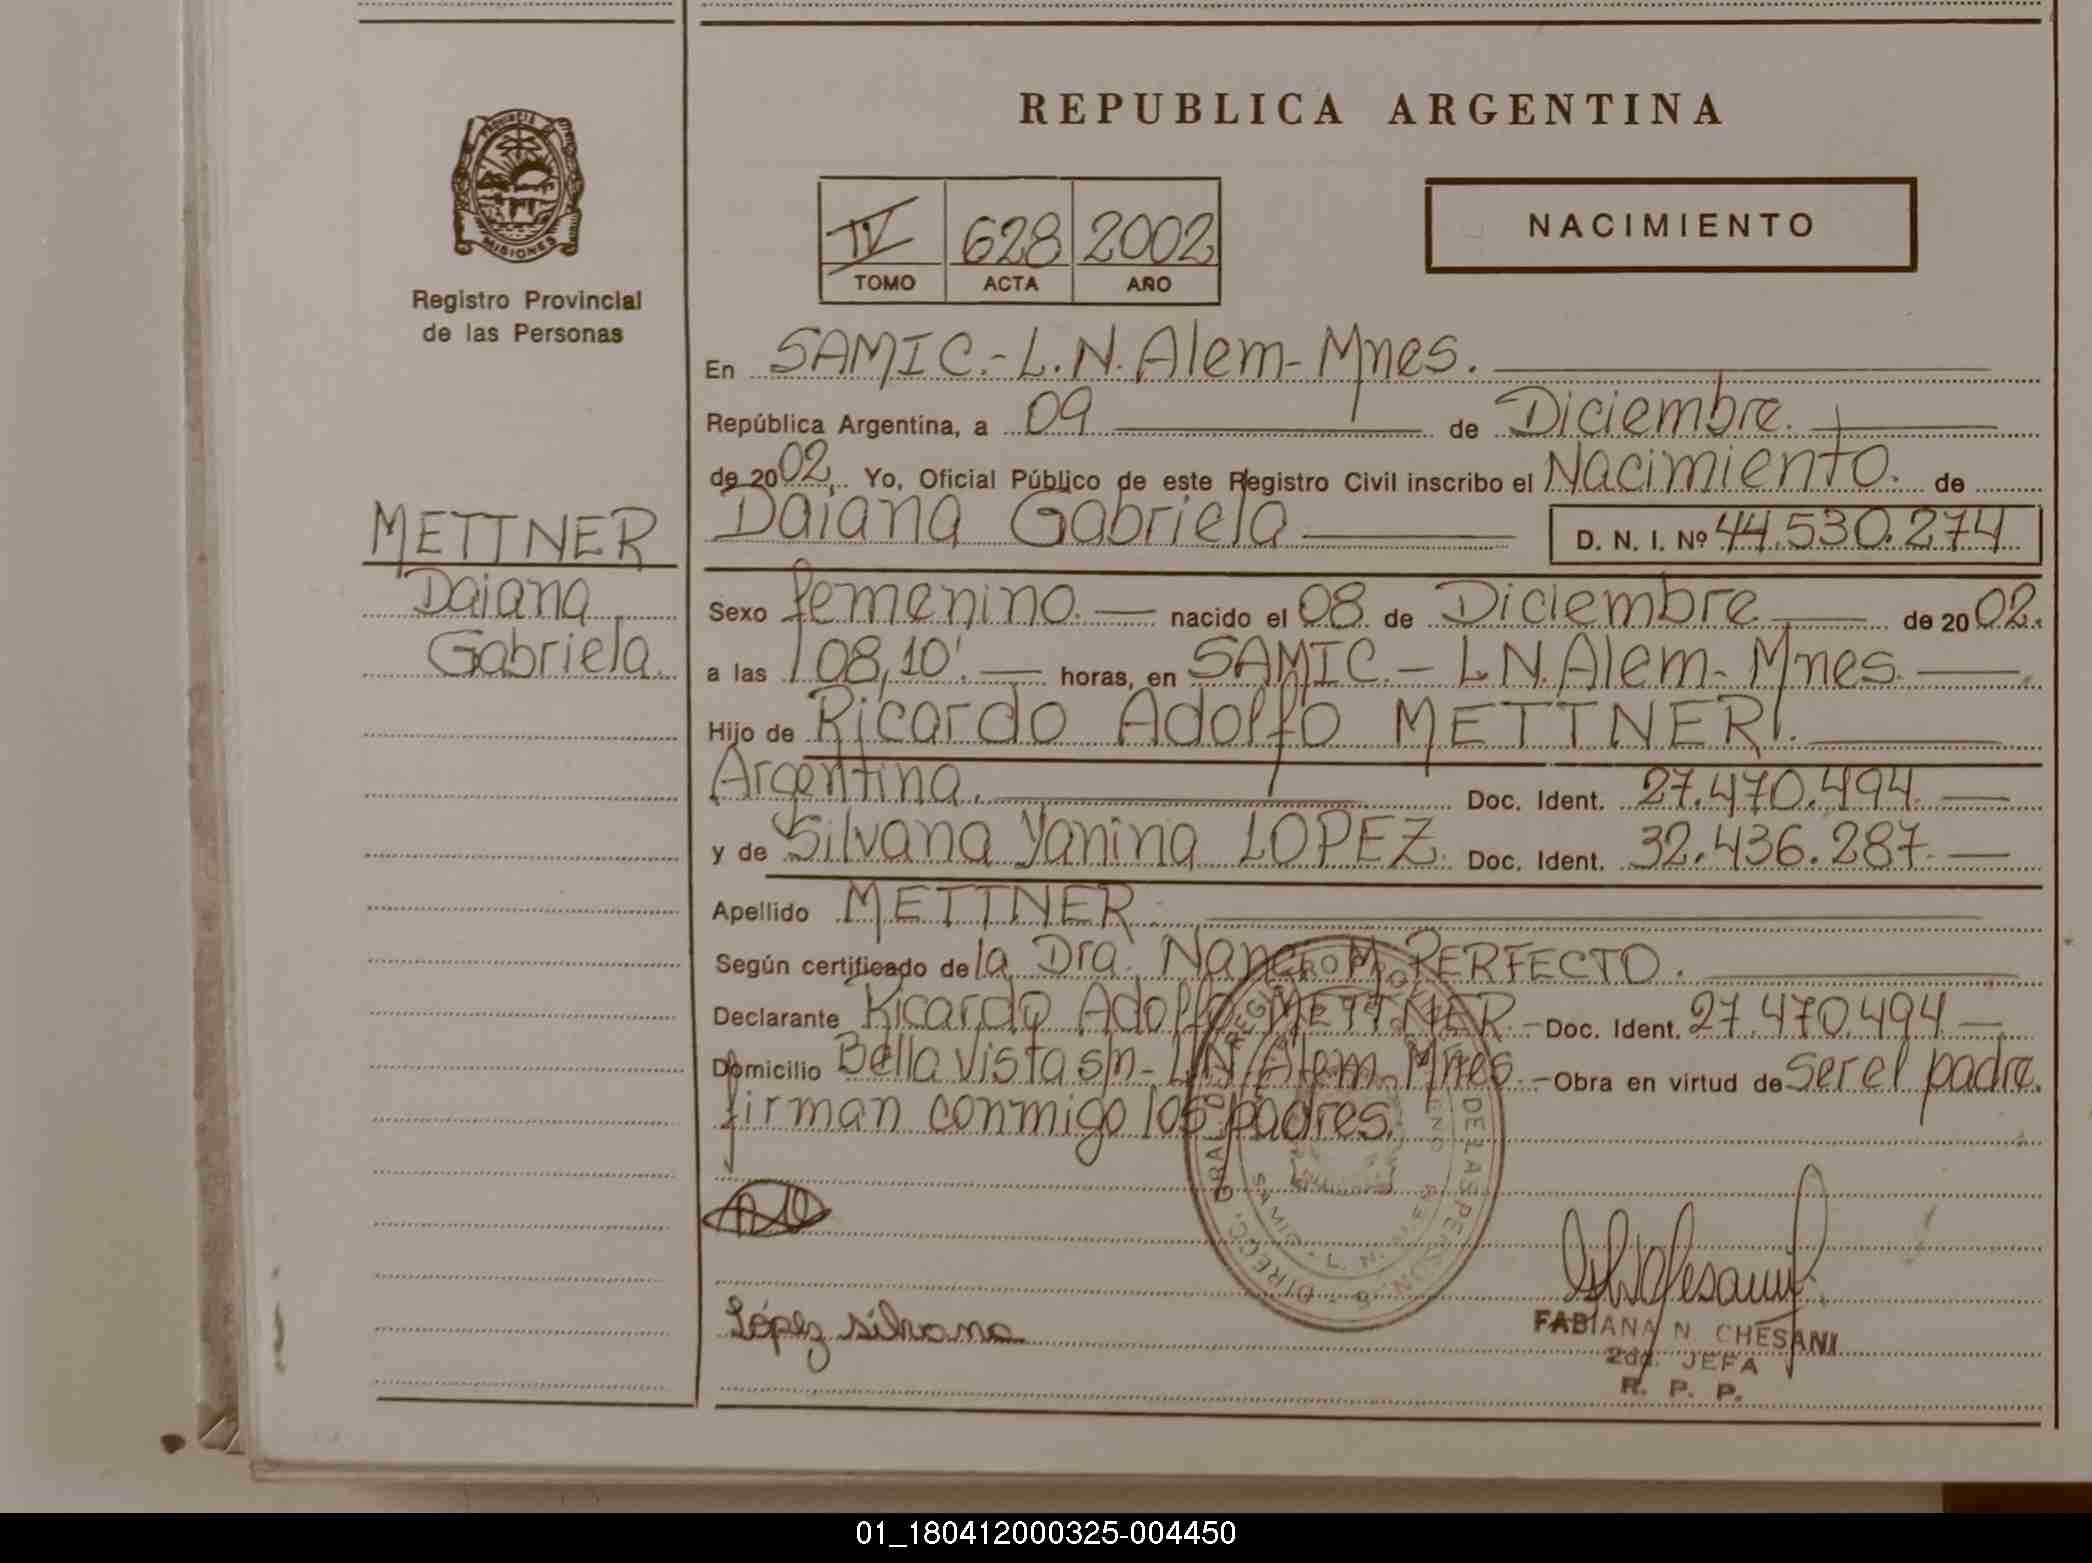 REPUBLICA ARGENTINA
PROVINCIA DE
MISIONES
Registro Provincial
de las Personas
IV 628 2002
TOMO ACTA AÑO
NACIMIENTO
En SAMIC.-L.N.Alem-Mnes.
República Argentina, a 09 de Diciembre.
de 2002, Yo, Oficial Público de este Registro Civil inscribo el Nacimiento. de
METTNER
Daiana
Gabriela.
Daiana Gabriela D. N. I. Nº 44.530.274
Sexo femenino.— nacido el 08. de Diciembre — de 2002.
a las 08,10'.— horas, en SAMIC.- L.N.Alem-Mnes.—
Hijo de Ricardo Adolfo METTNER.
Argentina. Doc. Ident. 27.470.494.—
y de Silvana Yanina LOPEZ. Doc. Ident. 32.436.287.—
Apellido METTNER.
Según certificado de la Dra. Nancy M. PERFECTO.
Declarante Ricardo Adolfo METTNER.- Doc. Ident. 27.470.494—
Domicilio Bella Vista s/n-L.N.Alem-Mnes.- Obra en virtud de ser el padre.
firman conmigo los padres.
López silvana
FABIANA N. CHESANI
2da. JEFA
R. P. P.
01_180412000325-004450